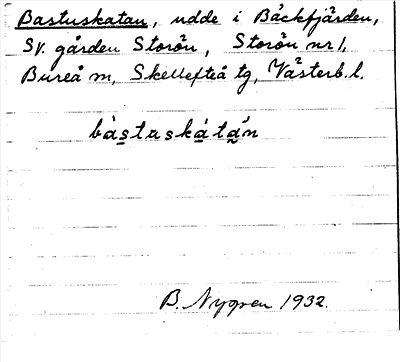 Bastuskatan, udde i Bäckfjärden,
SV. gården Storön, Storön nr 1,
Bureå m, Skellefteå tg, Västerb. l.
bàstuskátàn
B. Nygren 1932.